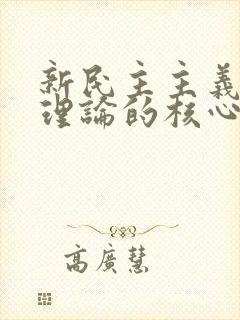 新民主主義
理論的核心
高廣慧